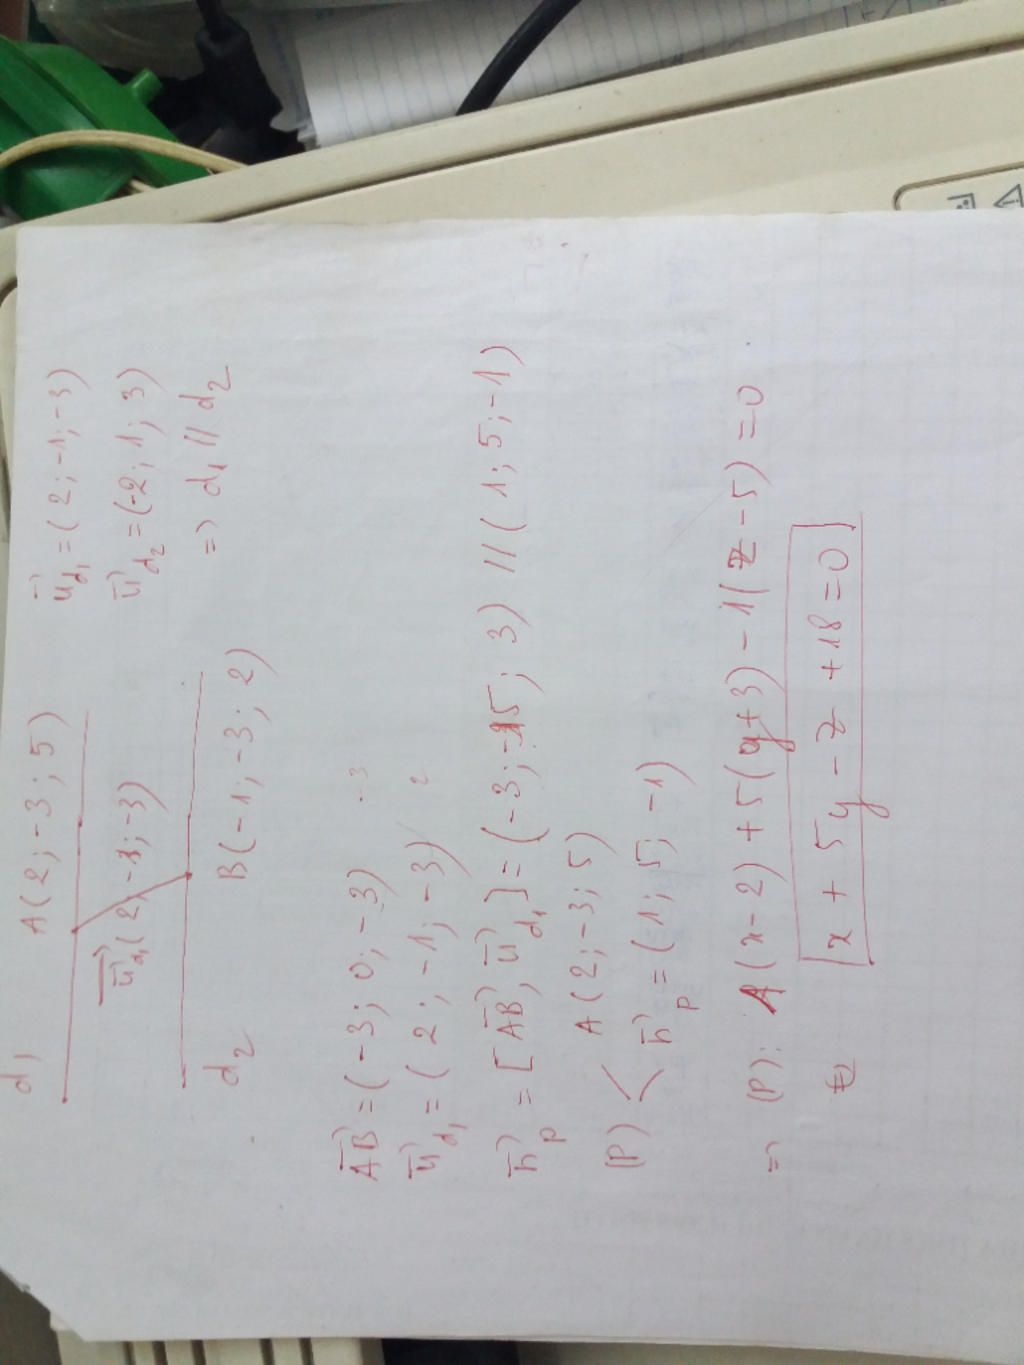 d₁ A(2;-3;5) u⃗d₁=(2;-1;-3)
u⃗d₁(2;-1;-3) u⃗d₂=(-2;1;3)
d₂ B(-1;-3;2) => d₁ // d₂
AB⃗=(-3;0;-3) -3
u⃗d₁=(2;-1;-3) 2
n⃗p=[AB⃗,u⃗d₁]=(-3;-15;3) //(1;5;-1)
(P) < A(2;-3;5)
n⃗p=(1;5;-1)
=> (P): 1(x-2)+5(y+3)-1(z-5)=0
x+5y-z+18=0